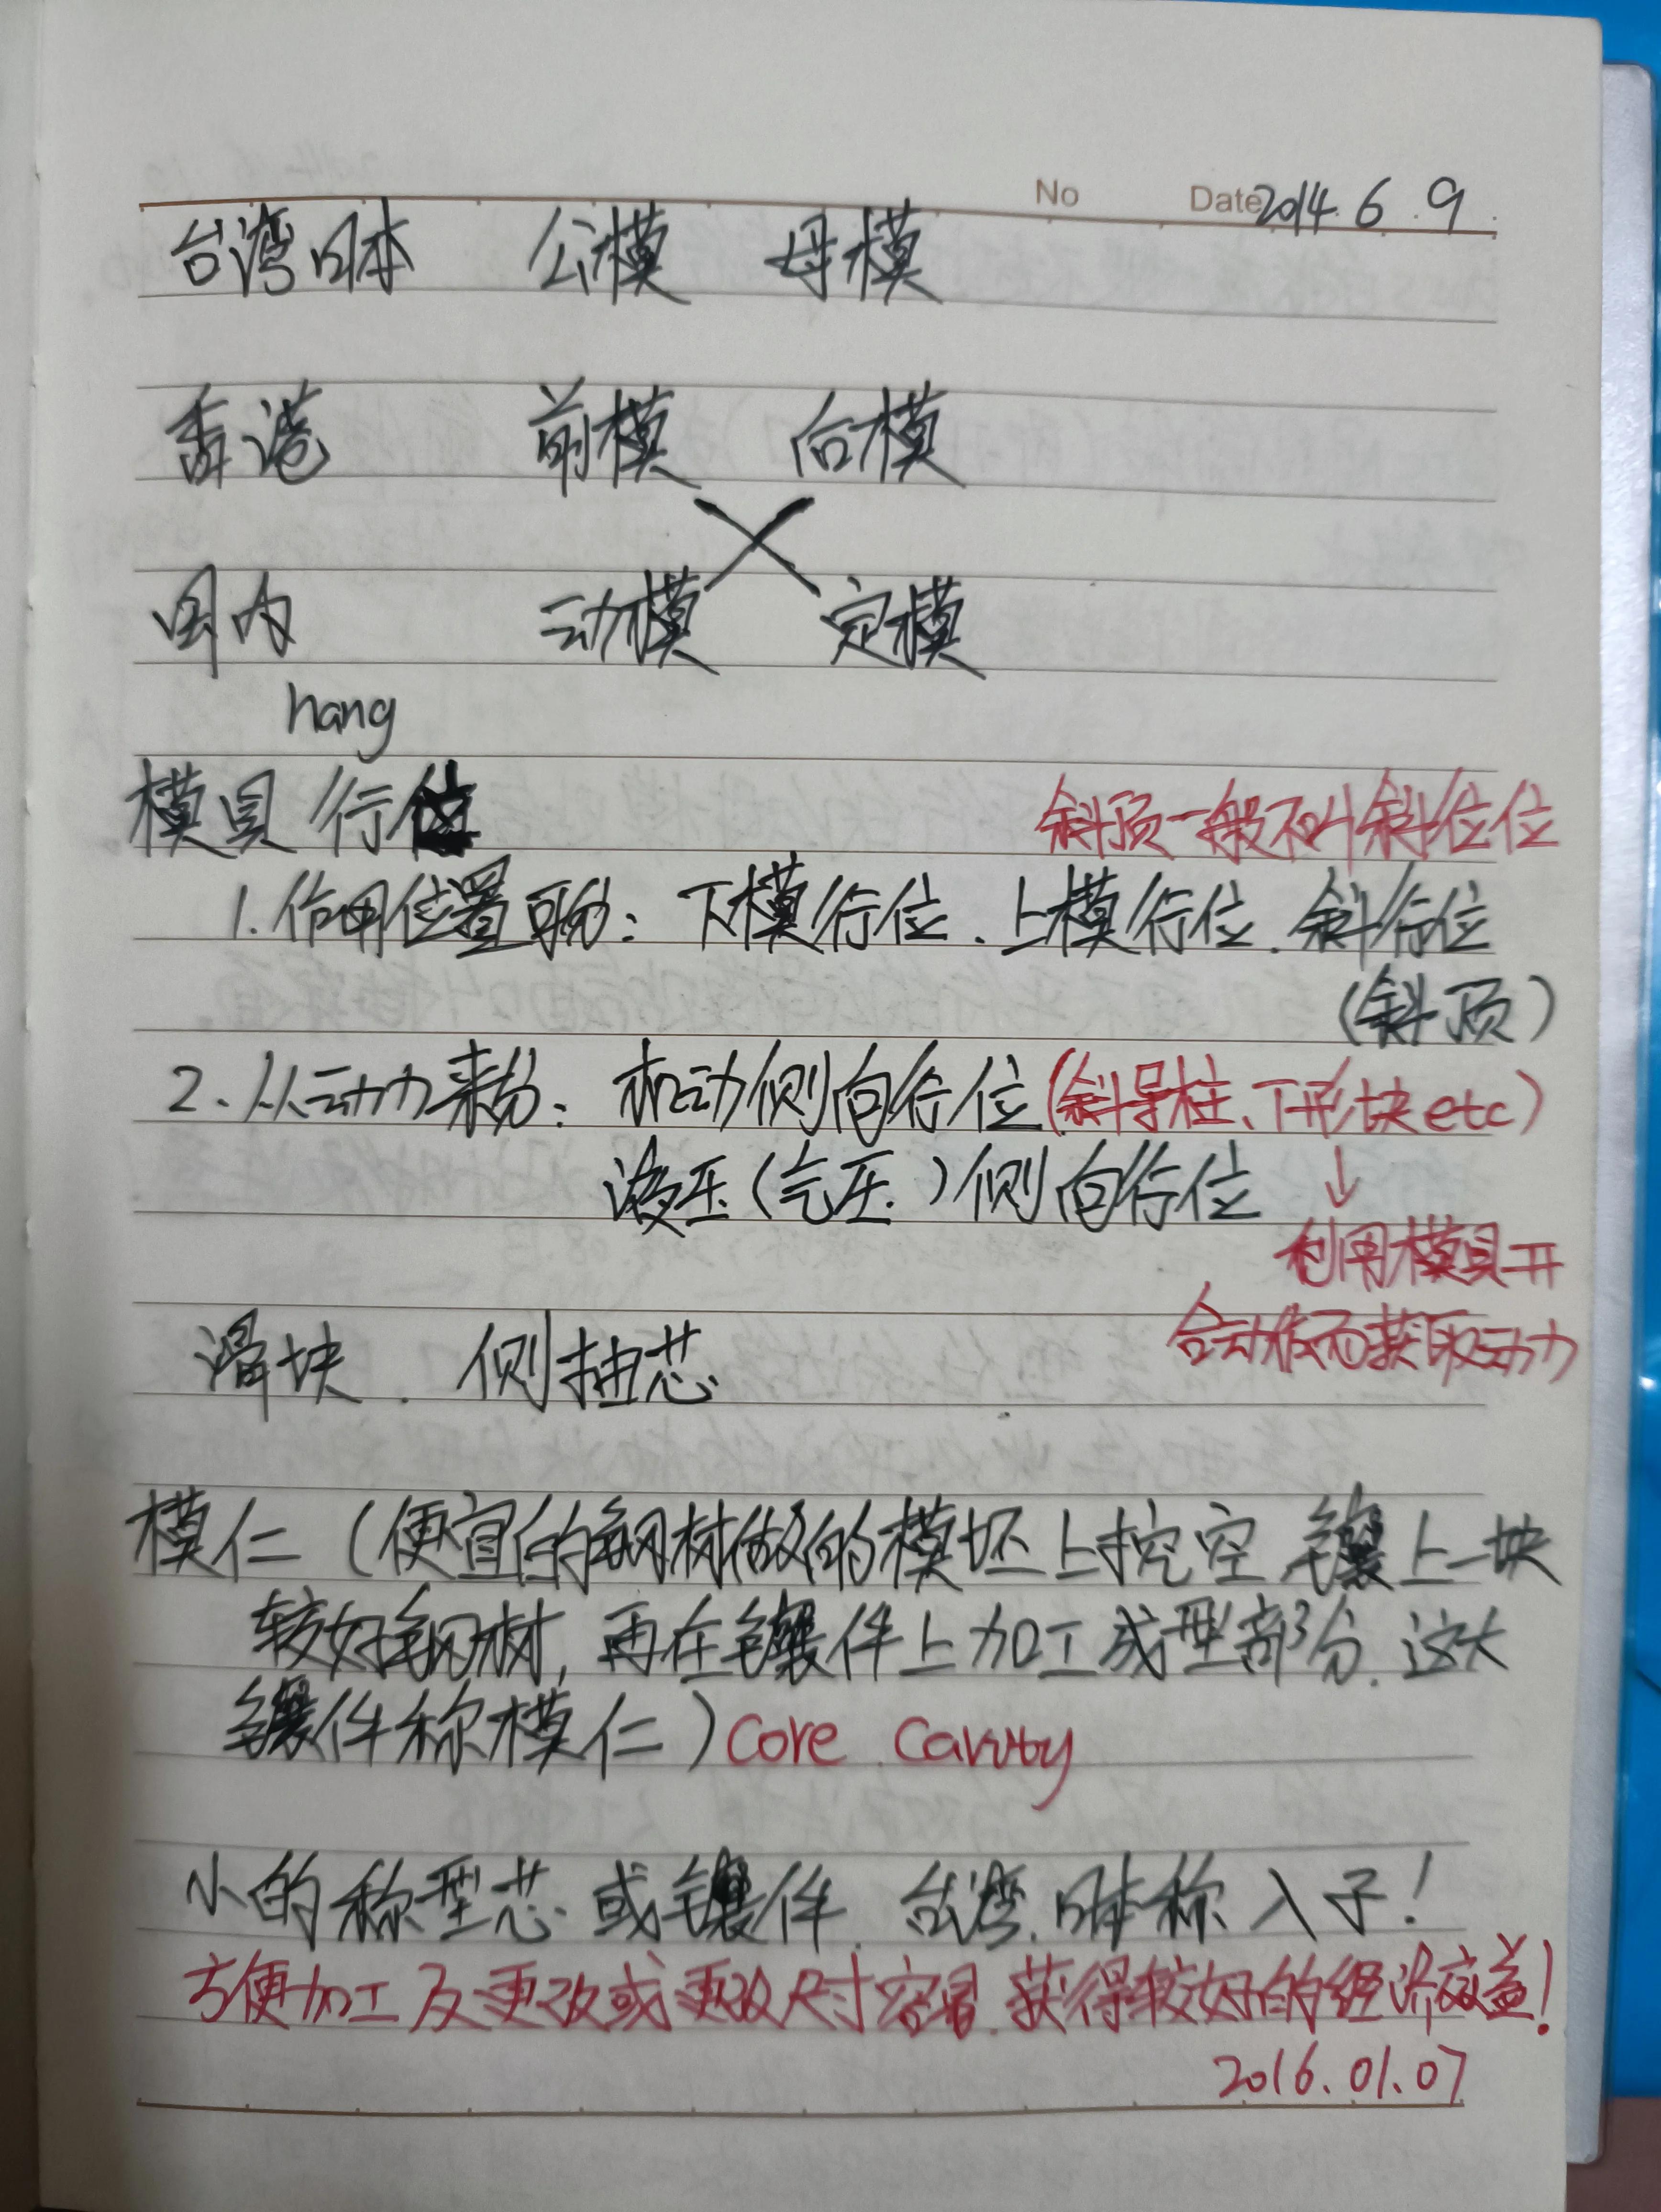 No Date 2014.6.9.
台湾日本 公模 母模
香港 前模 后模
国内 动模 定模
hang
模具行位
斜顶一般不叫斜位位
1.作用位置可分：下模行位、上模行位、斜行位
(斜顶)
2、从动力来分：机动侧向行位(斜导柱、T形块etc)
↓
液压(气压)侧向行位
利用模具开
合动作而获取动力
滑块、侧抽芯
模仁(便宜的钢材做的模坯上挖空镶上一块
较好钢材,再在镶件上加工成型部分.这大
镶件称模仁) core cavity
小的称型芯或镶件.台湾.日本称入子!
方便加工及更改或更改尺寸容易.获得较好的经济效益!
2016.01.07